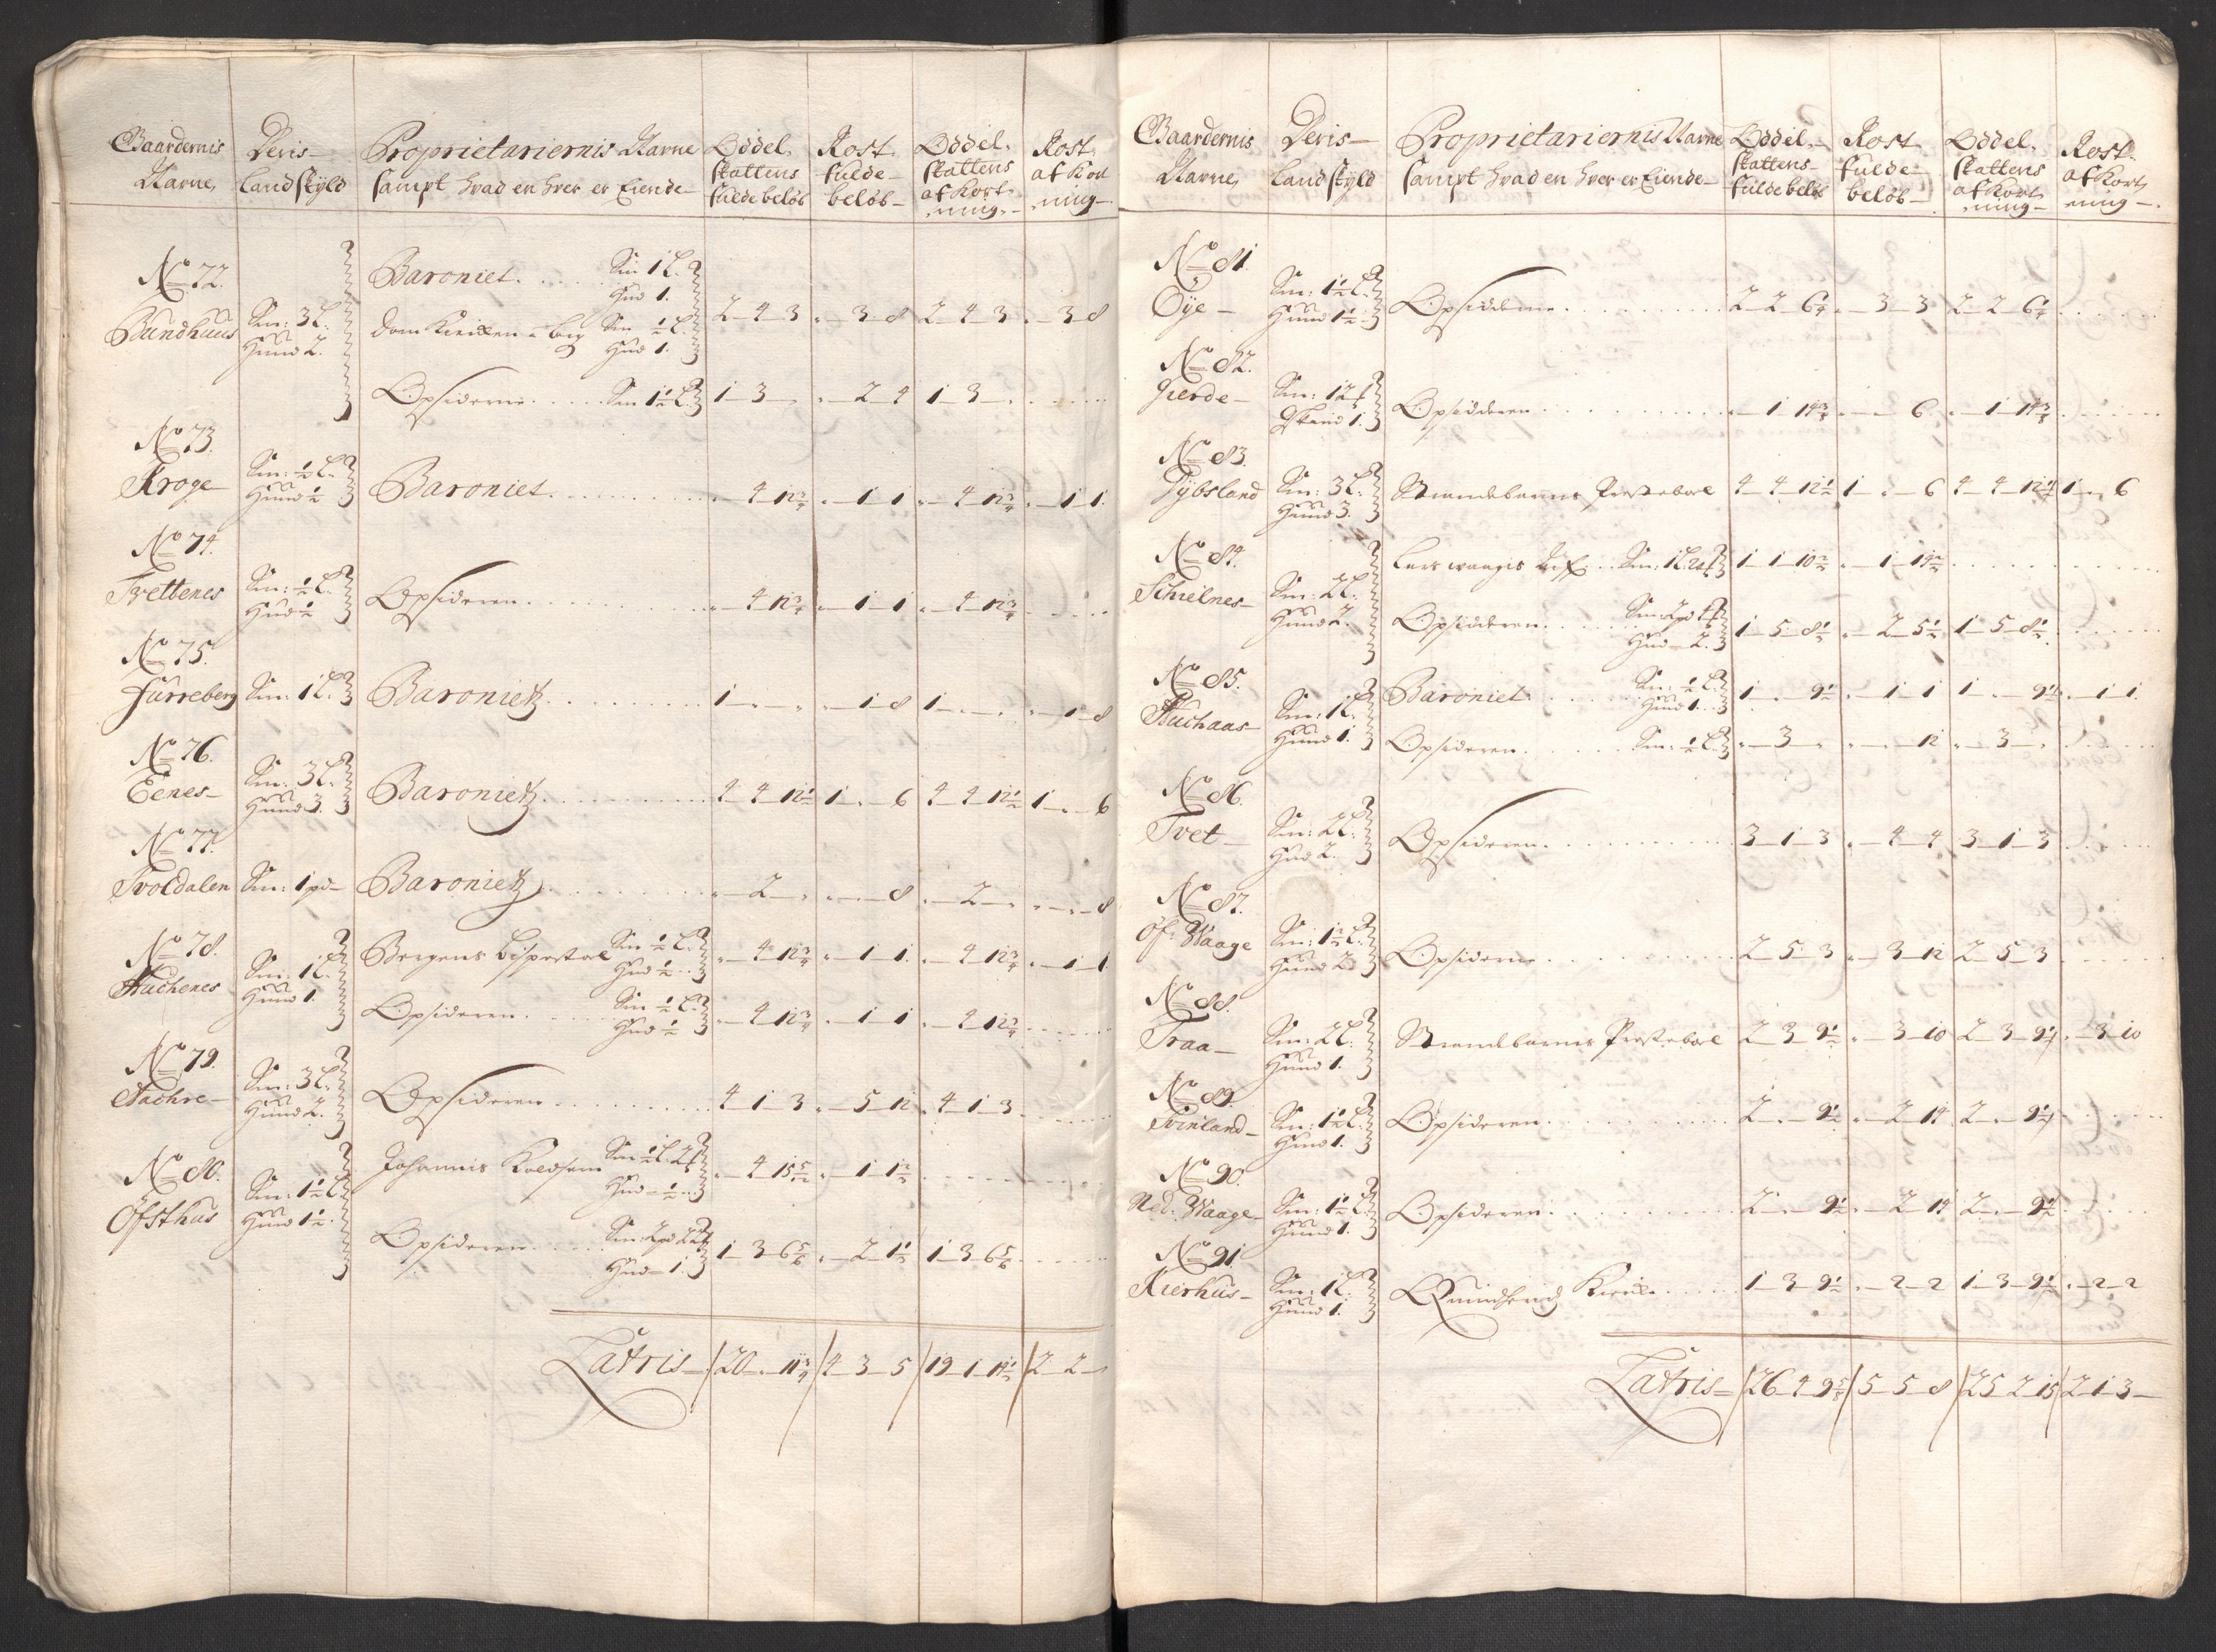 Gaardernis Nafne | Deris Landskyld | Proprietariernis Nafne sampt hvad en hver er Eiende | Oddel skattens fulde beløb | Rost fulde beløb | Oddel skattens afkortning | Rost afkortning
No 72.
Bundhuus | Sm: 3 L. Huud 2. | Baroniet Sm 1 L. Hud 1.
Domkirken i Berg Sm ½ L. Hud 1. | 2 - 4 - 3 | " - 3 - 8 | 2 - 4 - 3 | " - 3 - 8
Opsiderne Sm 1½ L. | 1 - 3 - " | " - 2 - 4 | 1 - 3 - "
No 73.
Kroge | Sm: ½ L. Huud ½ | Baroniet | " - 4 - 12¾ | " - 1 - 1 | " - 4 - 12¾ | " - 1 - 1.
No 74.
Tvettenes | Sm: ½ L. Hud ½ | Opsideren | " - 4 - 12¾ | " - 1 - 1 | " - 4 - 12¾
No 75.
Furreberg | Sm: 1 L. | Baroniet | 1 - " - " | " - 1 - 8 | 1 - " - " | " - 1 - 8
No 76.
Eenes | Sm: 3 L. Huud 3. | Baroniet | 4 - 4 - 12½ | 1 - " - 6 | 4 - 4 - 12½ | 1 - " - 6
No 77.
Troldalen | Sm: 1 pd | Baroniet | " - 2 - " | " - " - 8 | " - 2 - " | " - " - 8
No 78.
Auchenes | Sm: 1 L. Huud 1. | Bergens bispestoel Sm ½ L. Hud ½ | " - 4 - 12¾ | " - 1 - 1. | " - 4 - 12¾ | " - 1 - 1.
Opsideren Sm ½ L. Hud ½ | " - 4 - 12¾ | " - 1 - 1 | " - 4 - 12¾
No 79.
Aachre | Sm: 3 L. Huud 2. | Opsideren | 4 - 1 - 3 | " - 5 - 12 | 4 - 1 - 3
No 80.
Ofsthus | Sm: 1½ L. Huud 1½. | Johannis Koldsen Sm ½ L. 2 Hud ½ | " - 4 - 15 | " - 1 - 1½
Opsideren Sm: 2 pd 22 Hud 1. | 1 - 3 - 6⅚ | " - 2 - 1½ | 1 - 3 - 6⅚
Latris | 20 - " - 11¾ | 4 - 3 - 5 | 19 - 1 - 14½ | 2 - 2 - "
Gaardernis Nafne | Deris Landskyld | Proprietariernis Nafne sampt hvad en hver er Eiende | Oddel skattens fulde beløb | Rost fulde beløb | Oddel skattens afkortning | Rost afkortning
No 81.
Øye | Sm: 1½ L. Huud 1½. | Opsidderne | 2 - 2 - 6¼ | " - 3 - 3 | 2 - 2 - 6¼
No 82.
Gierde | Sm: 12 Skind 1. | Opsidderen | " - 1 - 14¾ | " - " - 6 | " - 1 - 14¾
No 83.
Tybsland | Sm: 3 L. Huud 3. | Strandebarms Prestebol | 4 - 4 - 12½ | 1 - " - 6 | 4 - 4 - 12½ | 1 - " - 6
No 84.
Schielnes | Sm: 2 L. Huud 2. | Lars waagis Sm: 1 L. 20 | 1 - 1 - 10½ | " - 1 - 14½
Opsidderen Sm 2 pd 4 Hud 2. | 1 - 5 - 8½ | " - 2 - 5½ | 1 - 5 - 8½
No 85.
Auchaas | Sm: 1 L. Huud 1. | Baroniet Sm: ½ L. Huud 1. | 1 - " - 9½ | " - 1 - 1 | 1 - " - 9½ | " - 1 - 1.
Opsideren Sm: ½ L. | " - 3 - " | " - " - 12 | " - 3 - "
No 86.
Tvet | Sm: 2 L. Hud 2. | Opsideren | 3 - 1 - 3 | " - 4 - 4 | 3 - 1 - 3
No 87.
Øf: Waage | Sm: 1½ L. Huud 2 | Opsiderne | 2 - 5 - 3 | " - 3 - 12 | 2 - 5 - 3
No 88.
Traa | Sm: 2 L. Huud 1. | Strandebarms Prestebol | 2 - 3 - 9½ | " - 3 - 10 | 2 - 3 - 9½ | " - 3 - 10
No 89.
Tvinland | Sm: 1½ L. Huud 1. | Opsideren | 2 - " - 9½ | " - 2 - 14 | 2 - " - 9½
No 90.
Ned: Waage | Sm: 1½ L. Huud 1. | Opsideren | 2 - " - 9½ | " - 2 - 14 | 2 - " - 9½
No 91
Kierhus | Sm: 1 L. Huud 1. | Quindherrid Kircke | 1 - 3 - 9½ | " - 2 - 2 | 1 - 3 - 9½ | " - 2 - 2
Latris | 26 - 4 - 9⅝ | 5 - 5 - 8 | 25 - 2 - 15 | 2 - 1 - 3